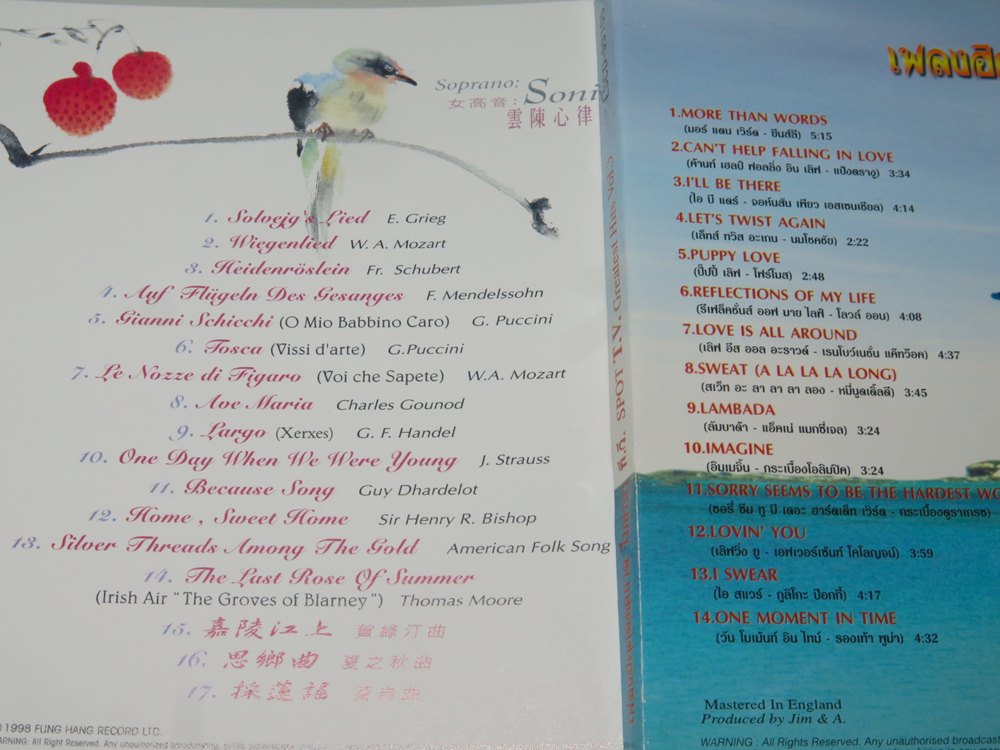 Soprano: Soni
女高音:
雲陳心律
1. Solvejg's Lied E. Grieg
2. Wiegenlied W. A. Mozart
3. Heidenröslein Fr. Schubert
4. Auf Flügeln Des Gesanges F. Mendelssohn
5. Gianni Schicchi (O Mio Babbino Caro) G. Puccini
6. Tosca (Vissi d'arte) G.Puccini
7. Le Nozze di Figaro (Voi che Sapete) W.A. Mozart
8. Ave Maria Charles Gounod
9. Largo (Xerxes) G. F. Handel
10. One Day When We Were Young J. Strauss
11. Because Song Guy Dhardelot
12. Home , Sweet Home Sir Henry R. Bishop
13. Silver Threads Among The Gold American Folk Song
14. The Last Rose Of Summer
(Irish Air "The Groves of Blarney") Thomas Moore
15. 嘉陵江上 賀綠汀曲
16. 思鄉曲 夏之秋曲
17. 採蓮謠
1998 FUNG HANG RECORD LTD.
WARNING: All Rights Reserved. Any unauthorized broadcasting, public
SPOT T.V. Greatest Hits Vol.3
1.MORE THAN WORDS
(มอร์ แดน เวิร์ด - ยีนส์ลี) 5:15
2.CAN'T HELP FALLING IN LOVE
(ค้านท์ เฮลป์ ฟอลลิ่ง อิน เลิฟ - แป้งตรางู) 3:34
3.I'LL BE THERE
(ไอ บี แดร์ - จอห์นสัน เพียว เอสเซนเชียล) 4:14
4.LET'S TWIST AGAIN
(เล็ทส์ ทวิส อะเกน - นมโชคชัย) 2:22
5.PUPPY LOVE
(ปั๊ปปี้ เลิฟ - โฟร์โมส) 2:48
6.REFLECTIONS OF MY LIFE
(รีเฟล็คชั่นส์ ออฟ มาย ไลฟ์ - โลวส์ ออน) 4:08
7.LOVE IS ALL AROUND
(เลิฟ อีส ออล อะราวด์ - เรนโบว์เนชั่น แค๊ทว๊อค) 4:37
8.SWEAT (A LA LA LA LONG)
(สเว็ท อะ ลา ลา ลา ลอง - หมี่นูดเดิ้ลดี) 3:45
9.LAMBADA
(ลัมบาด้า - แอ็คเน่ แมกซี่เจล) 3:24
10.IMAGINE
(อิมเมจิ้น - กระเบื้องโอลิมปิค) 3:24
11.SORRY SEEMS TO BE THE HARDEST WO
(ซอรี่ ซีม ทู บี เดอะ ฮาร์ดเด็ท เวิร์ด - กระเบื้องดูราเกรซ)
12.LOVIN' YOU
(เลิฟวิ่ง ยู - เอฟเวอร์เซ้นท์ โคโลญจน์) 3:59
13.I SWEAR
(ไอ สแวร์ - กูลิโกะ ป๊อกกี้) 4:17
14.ONE MOMENT IN TIME
(วัน โมเม้นท์ อิน ไทม์ - รองเท้า พูม่า) 4:32
Mastered In England
Produced by Jim & A.
WARNING : All Rights Reserved. Any unauthorised broadcast